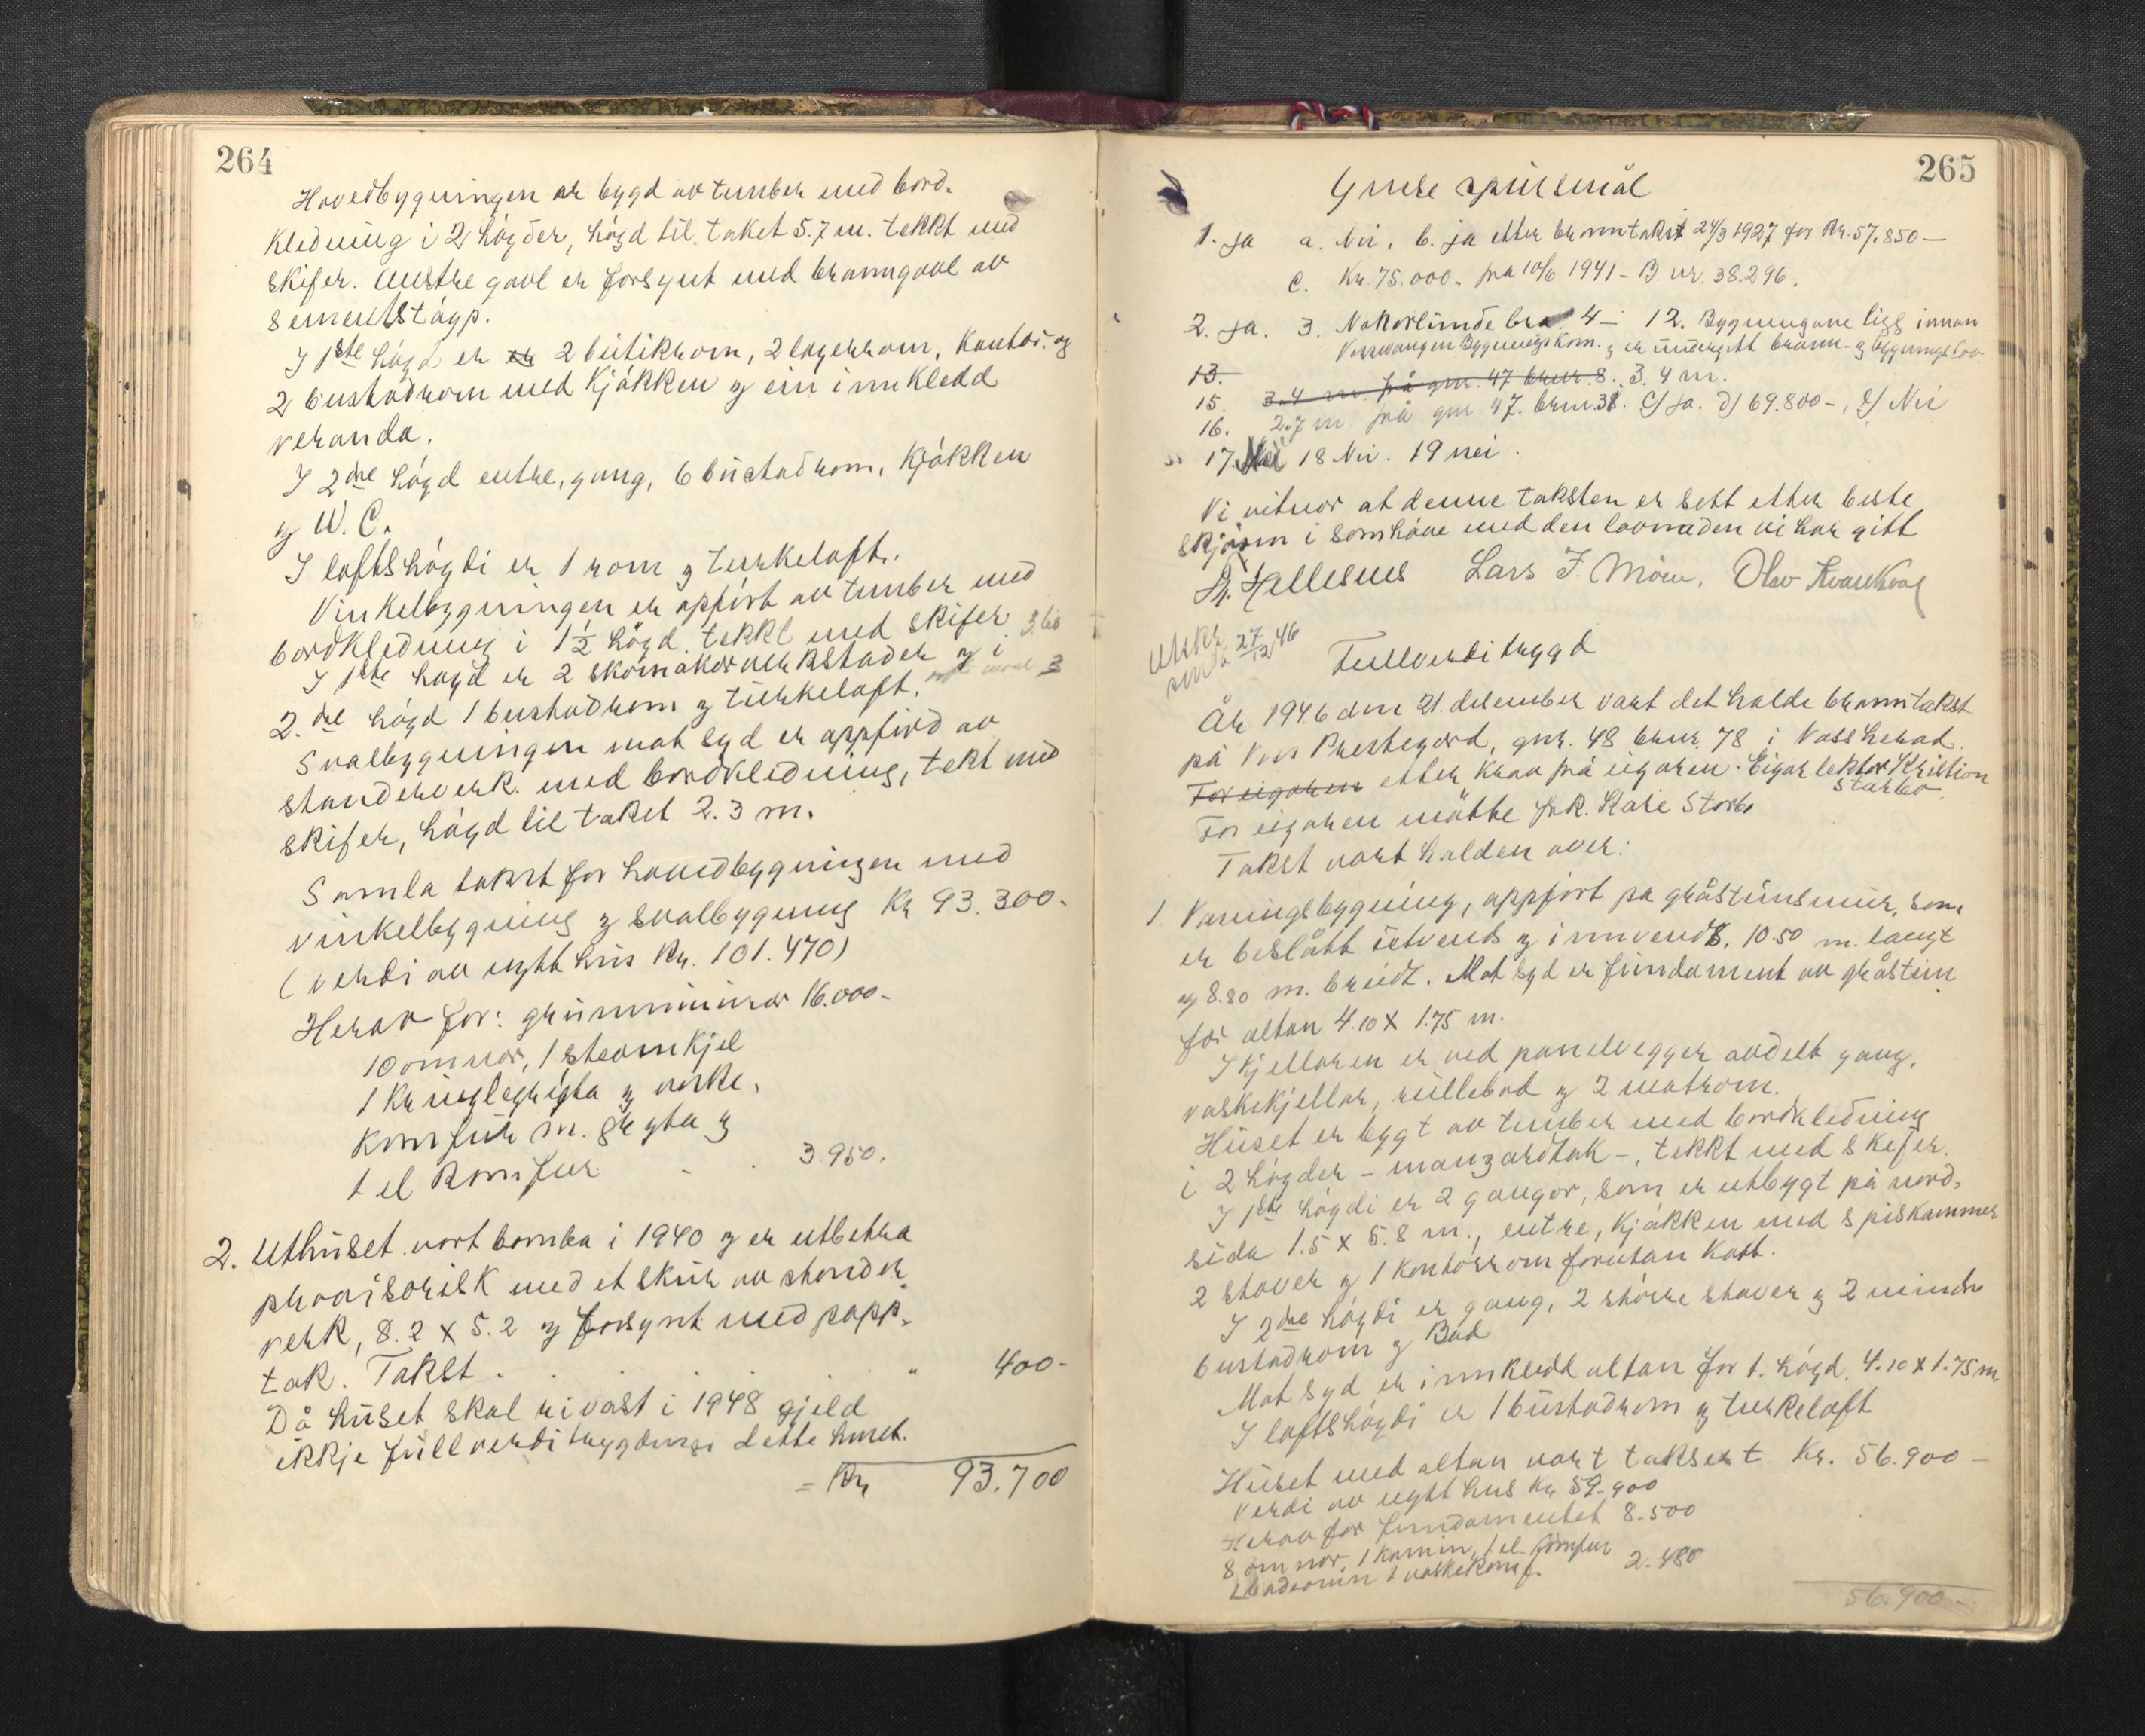 264
Hovedbygningen er bygd av tømber med bord-
kledning i 2 høgder, høgd til taket 5.7 m. tekkt med
skifer. Austre gavl er forsynt med branngavl av
sementstøyp.
I 1ste høgd er 2 butikkrom, 2 lagerrom, kontor og
2 bustadrom med kjøkken og ein innkledd
veranda.
I 2dre høgd entre, gang, 6 bustadrom, kjøkken
og W.C.
I loftshøgdi er 1 rom og turkeloft.
Vinkelbygningen er oppført av tømber med
bordkledning i 1½ høgd tekkt med skifer
I 1ste høgd er 2 skomakarverkstader og i
2.dre høgd 1 bustadrom og turkeloft.
Svalbygningen mot syd er oppførd av
standerverk med bordkledning, tekt med
skifer, høgd til taket 2.3 m.
Samla takst for hovedbygningen med
vinkelbygning og svalbygning Kr 93.300-
(verdi av nytt hus Kr. 101.470)
Herav for: grunnmurar 16.000-
10 omnar, 1 steamkjel
1 kringlegryta og vaske-
komfur m. gryta og
1 el komfur - - 3950.
2. Uthuset vart bomba i 1940 og er utbetra
provisorisk med et skur av stender
verk, 8.2 x 5.2 og forsynt med papp-
tak. Takst . . . . . " 400-
Då huset skal rivast i 1948 gjeld
ikkje fullverditrygding dette huset.
= Kr 93.700
265
Ymse spursmål
1. ja a. Nei, b. ja etter branntakst 24/3 1927 for Kr. 57.850—
c. Kr. 75.000. frå 10/6 1941 - B. nr. 38.296.
2. ja. 3. Nokorlunde bra 4 — 12. Bygningane ligg innan
Vossevangen Bygningskom. og er undergitt brann- og bygningslov
13.
15. 3.4 m frå gnr. 47 bnr. 8. 3.4 m.
16. 2.7 m frå gnr 47. bnr. 38. c) ja. d) 69.800-, e) Nei
17. Nei 18 Nei. 19 nei.
Vi vitnar at denne taksten er sett etter beste
skjøn i samhøve med den lovnaden vi har gitt
Lars J. Møen, Olav Kvarekval
Utskr.
sendt 27/12 46
Fullverditrygd
År 1946 den 21. desember vart det halde branntakst
på Voss Prestegard, gnr. 48 bnr. 78 i Voss herad.
For eigaren etter krav frå eigaren. Eigar lektor Kristian
Størbo
For eigaren møtte frk. Kari Størbo
Takst vart halden over:
1. Våningsbygning, oppført på gråsteinsmur, som
er beslått utvends og innvends, 10.50 m. langt
og 8.80 m. breidt. Mot syd er fundament av gråstein
for altan 4.10 x 1.75 m.
I kjellaren er ved panelvegger avdelt gang,
vaskekjellar, rullebod og 2 matrom.
Huset er bygt av tømber med bordkledning
i 2 høgder - manzardtak -, tekkt med skifer.
I 1ste høgdi er 2 gangar, som er utbygt på nord-
sida 1.5 x 5.8 m., entre, kjøkken med spiskammer
2 stover og 1 kontorrom forutan kott.
I 2dre høgdi er gang, 2 større stover og 2 mindre
bustadrom og Bad
Mot syd er innkledd altan for 1. høgd. 4.10 x 1.75 m.
I loftshøgdi er 1 bustadrom og turkeloft
Huset med altan vart taksert Kr. 56.900 —
Verdi av nytt hus Kr 59.900
Herav for fundamentet 8.500
8 omnar, 1 kamin, 1 el. komfur
1 badeomn 1 vaskekomf. 2.480
56.900 —